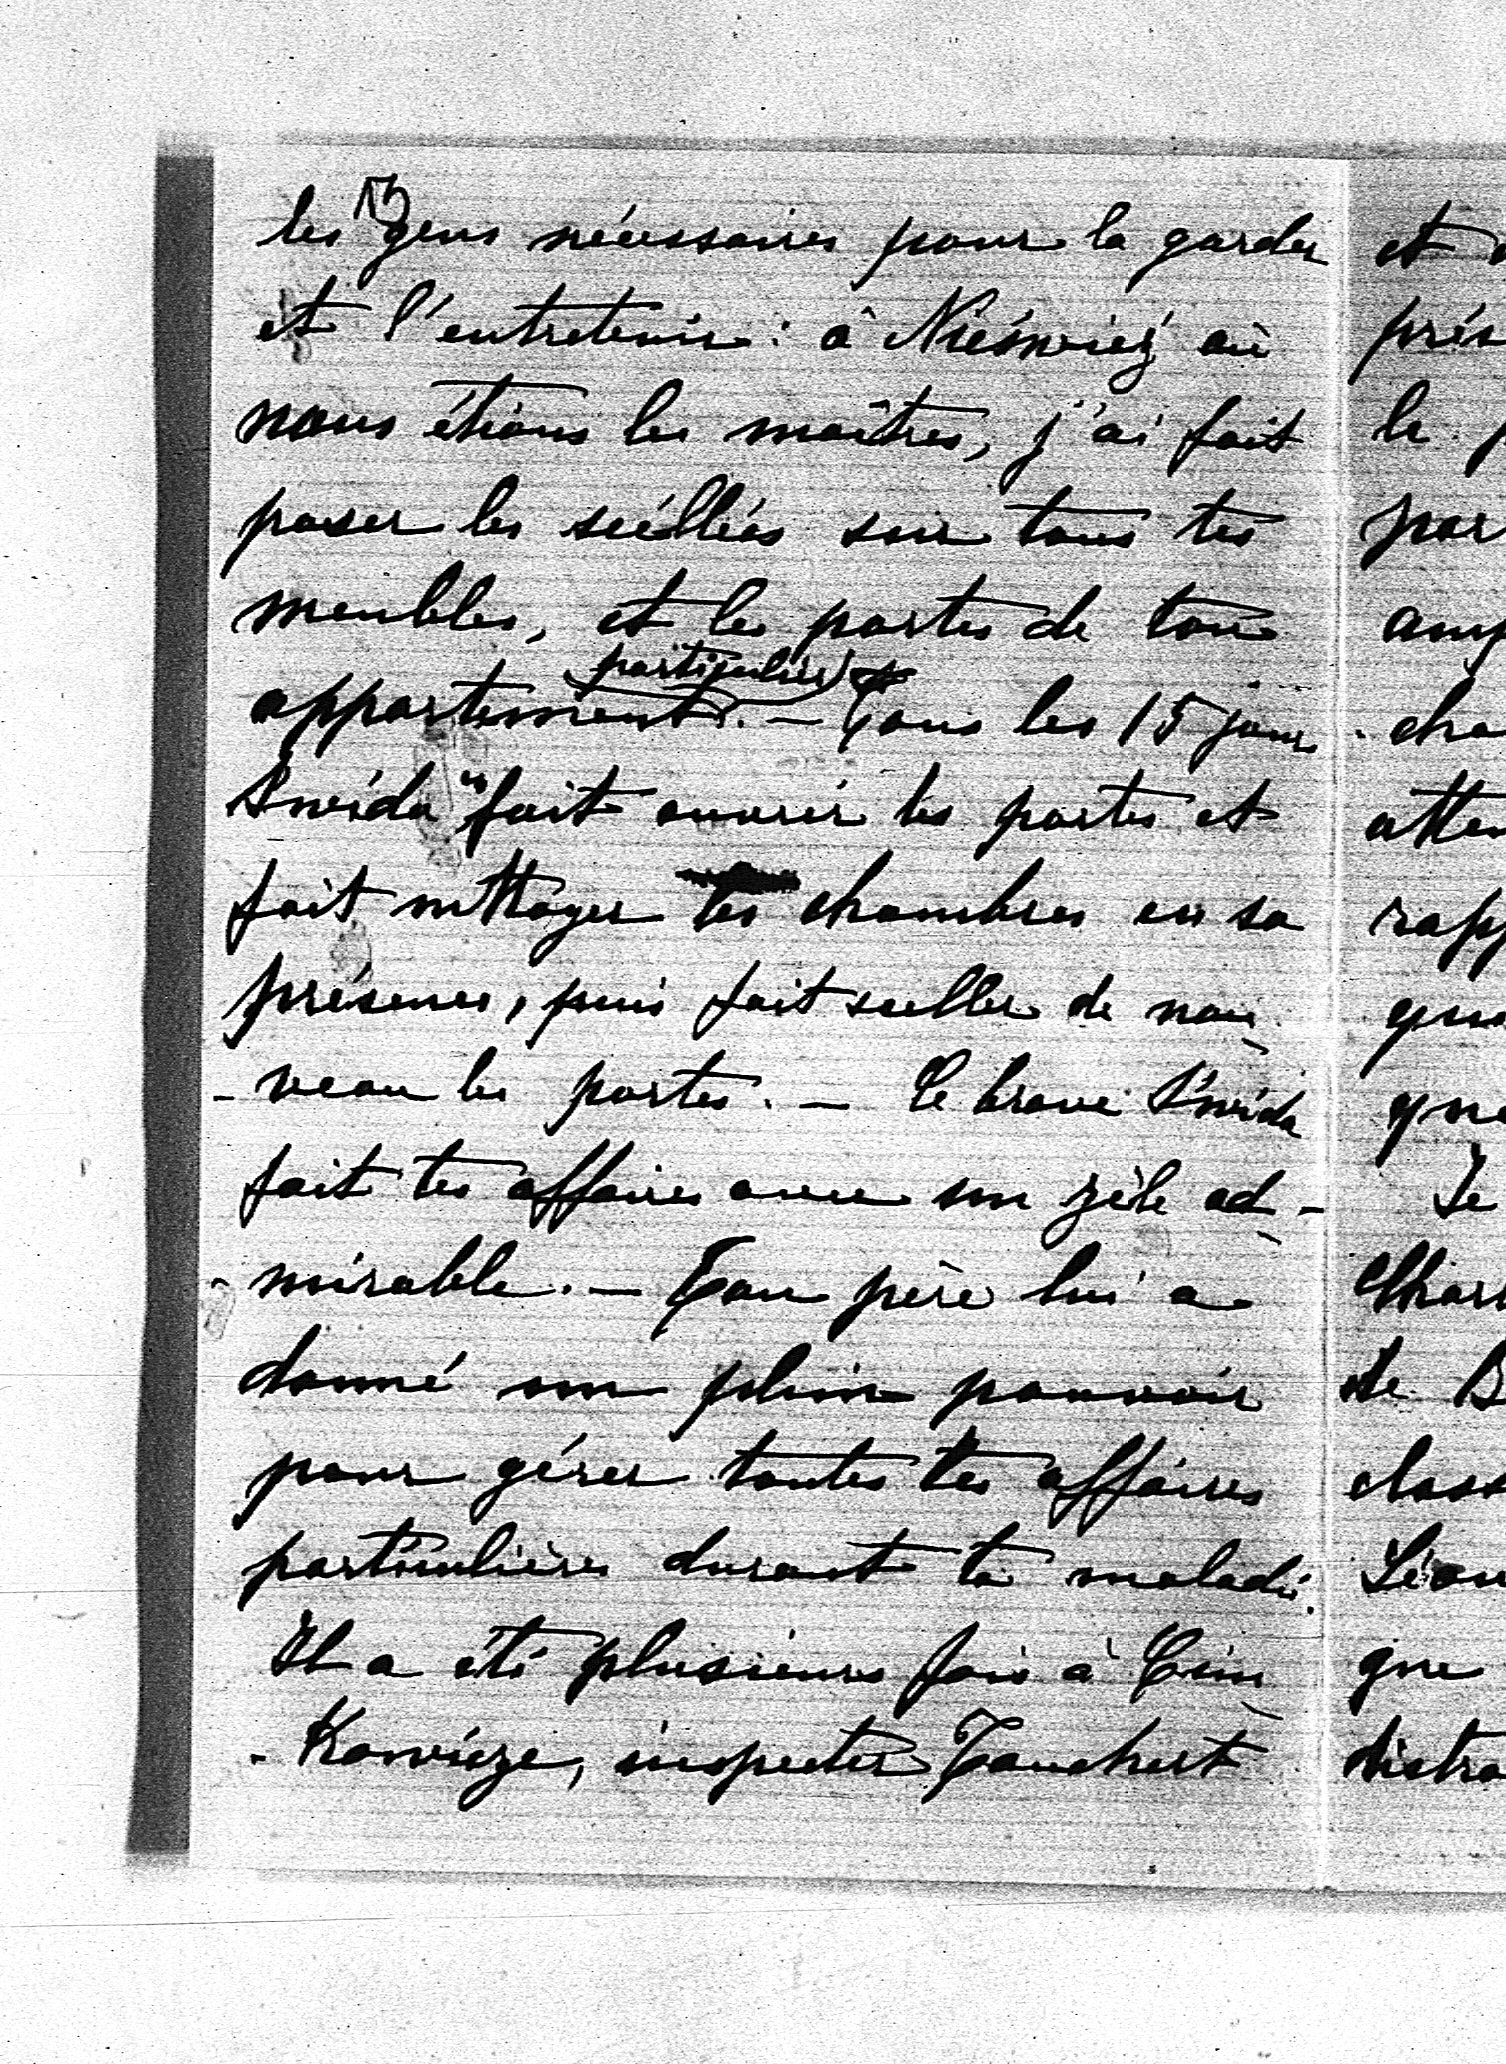 les gens nécessaires pour la garder
et l'entretenir : à Nieśwież où
nous étions les maîtres, j'ai fait
poser les scéllées sur tous tes
meubles, et les portes de ton
particulier
appartement. — Tous les 15 jours
Swida fait ouvrir les portes et
fait nettoyer les chambres en sa
présence, puis fait sceller de nou-
- veau les portes. — Le brave Swida
fait tes affaires avec un zèle ad-
- mirable. — Ton père lui a
donné un plein pouvoir
pour gérer toutes tes affaires
particulières durant ta maladie.
Il a été plusieurs fois à Cim-
- Kowicze, inspecter Tauchert
et
prés
le
par
amp
cha
atten
rapp
que
Je
Char
de B
class
Léon
que
distra